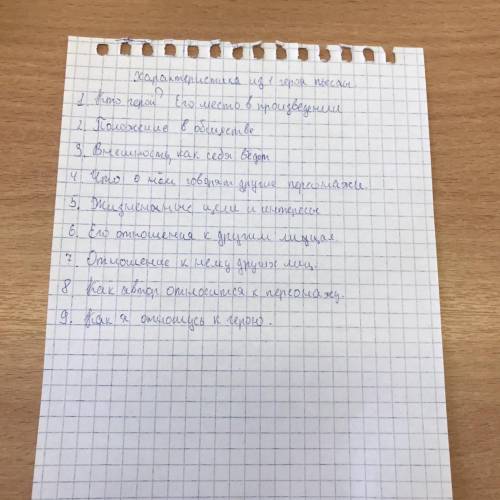 Характеристика из 1 героя пьесы
1. Кто герой? Его место в произведении
2. Положение в обществе
3. Внешность, как себя ведёт
4. Что о нём говорят другие персонажи.
5. Жизненные цели и интересы
6. Его отношения к другим лицам
7. Отношение к нему других лиц.
8 Как автор относится к персонажу.
9. Как я отношусь к герою.